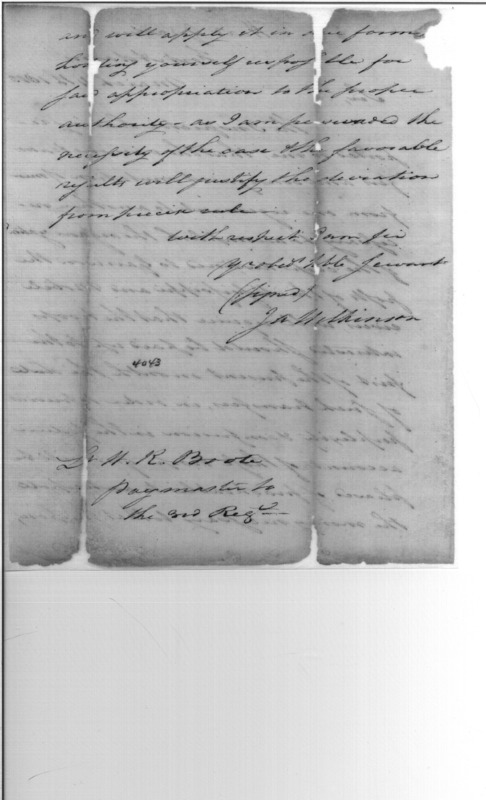 and will apply it in due form
holding yourself responsible for
fair appropriation to the proper
authority - as I am persuaded the
necessity of the case & the favorable
results will justify the deviation
from precise rule
with respect I am Sir
yr obt hble Servant
(signed)
Ja Wilkinson
4043
Lt W. K. Boote
paymaster to
the 3rd Regt